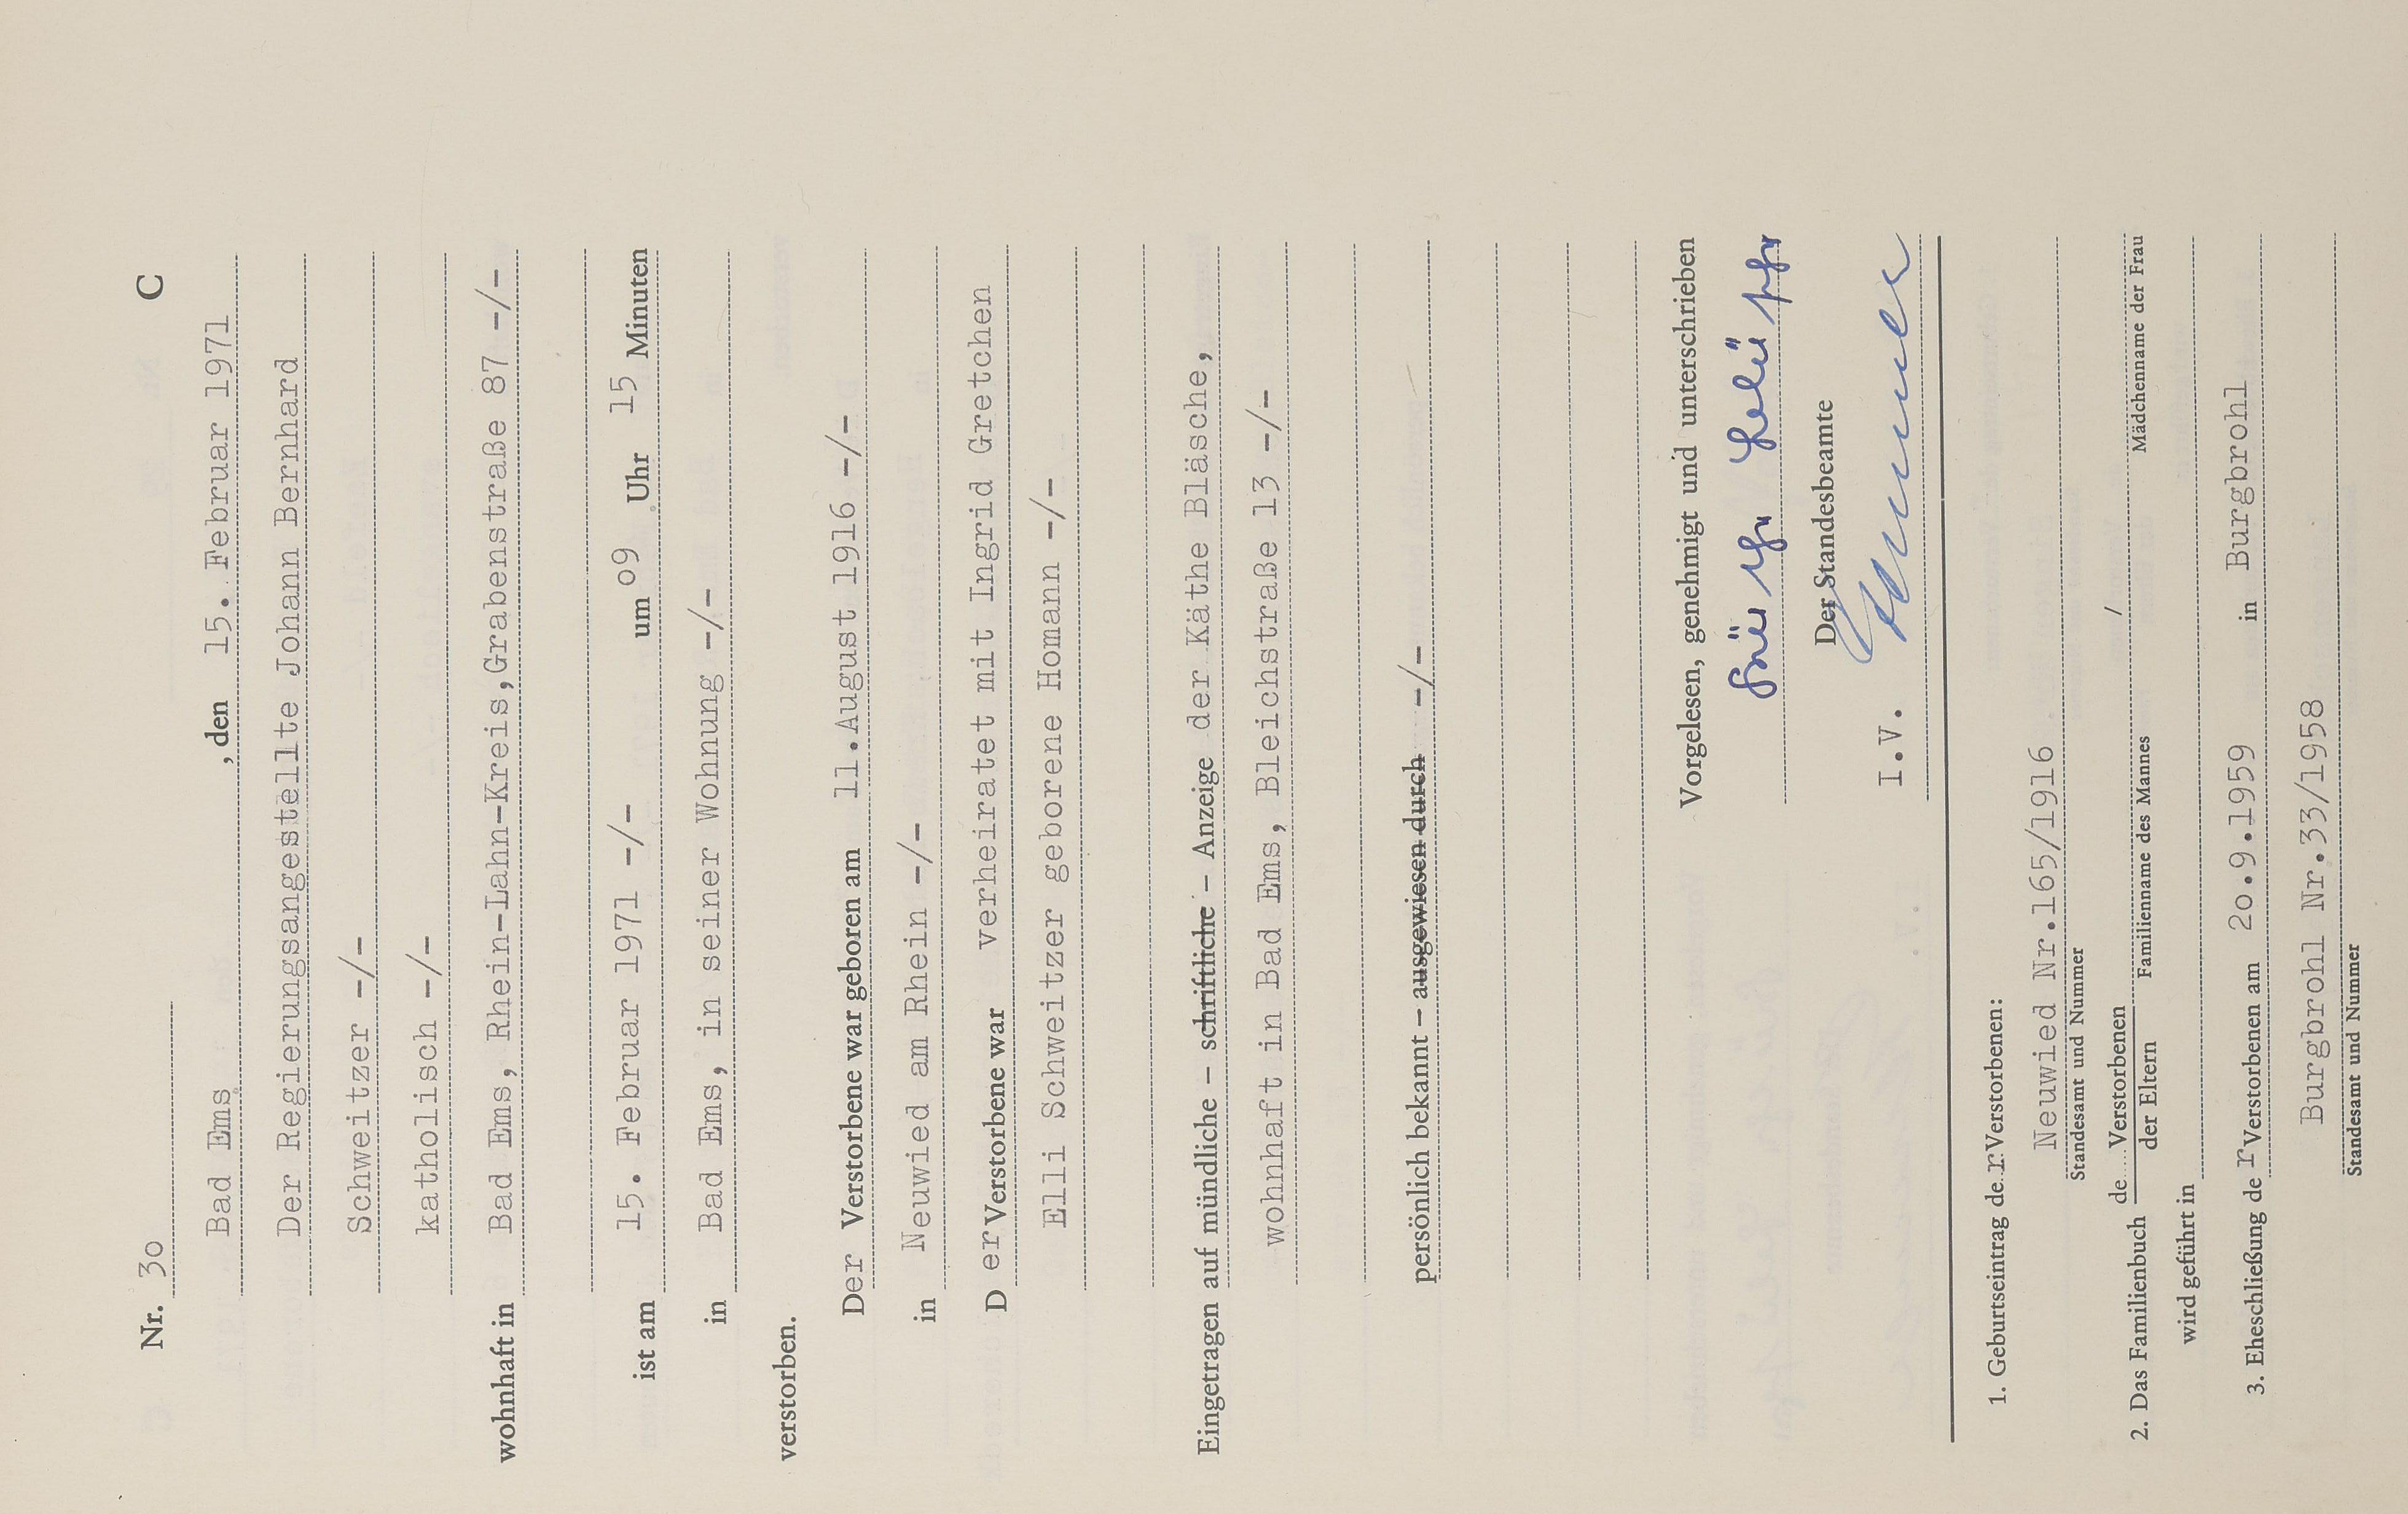 Nr. 3o C
Bad Ems , den 15. Februar 1971
Der Regierungsangestellte Johann Bernhard
Schweitzer -/-
katholisch -/-
wohnhaft in Bad Ems, Rhein-Lahn-Kreis,Grabenstraße 87 -/-
ist am 15. Februar 1971 -/- um o9 Uhr 15 Minuten
in Bad Ems, in seiner Wohnung -/-
verstorben.
Der Verstorbene war geboren am 11.August 1916 -/-
in Neuwied am Rhein -/-
D er Verstorbene war verheiratet mit Ingrid Gretchen
Elli Schweitzer geborene Homann -/-
Eingetragen auf mündliche – schriftliche – Anzeige der Käthe Bläsche,
wohnhaft in Bad Ems, Bleichstraße 13 -/-
persönlich bekannt – ausgewiesen durch -/-
Vorgelesen, genehmigt und unterschrieben
Der Standesbeamte
I.V.
1. Geburtseintrag de r Verstorbenen:
Neuwied Nr.165/1916
Standesamt und Nummer
2. Das Familienbuch de Verstorbenen /
der Eltern Familienname des Mannes Mädchenname der Frau
wird geführt in
3. Eheschließung de r Verstorbenen am 2o.9.1959 in Burgbrohl
Burgbrohl Nr.33/1958
Standesamt und Nummer